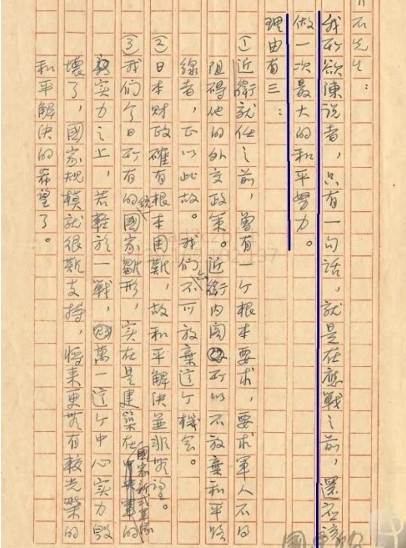 石先生：
我所欲陳說者，只有一句話，就是在應戰之前，還應該
做一次最大的和平努力。
理由有三：
①近衛就任之前，曾有一个根本要求，要求軍人不得
阻碍他的外交政策。近衛內閣所以不放棄和平路
線者，正以此故。我們不可放棄這个機会。
②日本財政確有根本困難，故和平解決並非無望。
③我們今日所有的統一國家雛形，實在是建築在國家新式軍隊的
實力之上，若輕於一戰，萬一這个中心實力毀
壞了，國家規模就很難支持，將來更無有較光榮的
和平解決的希望了。